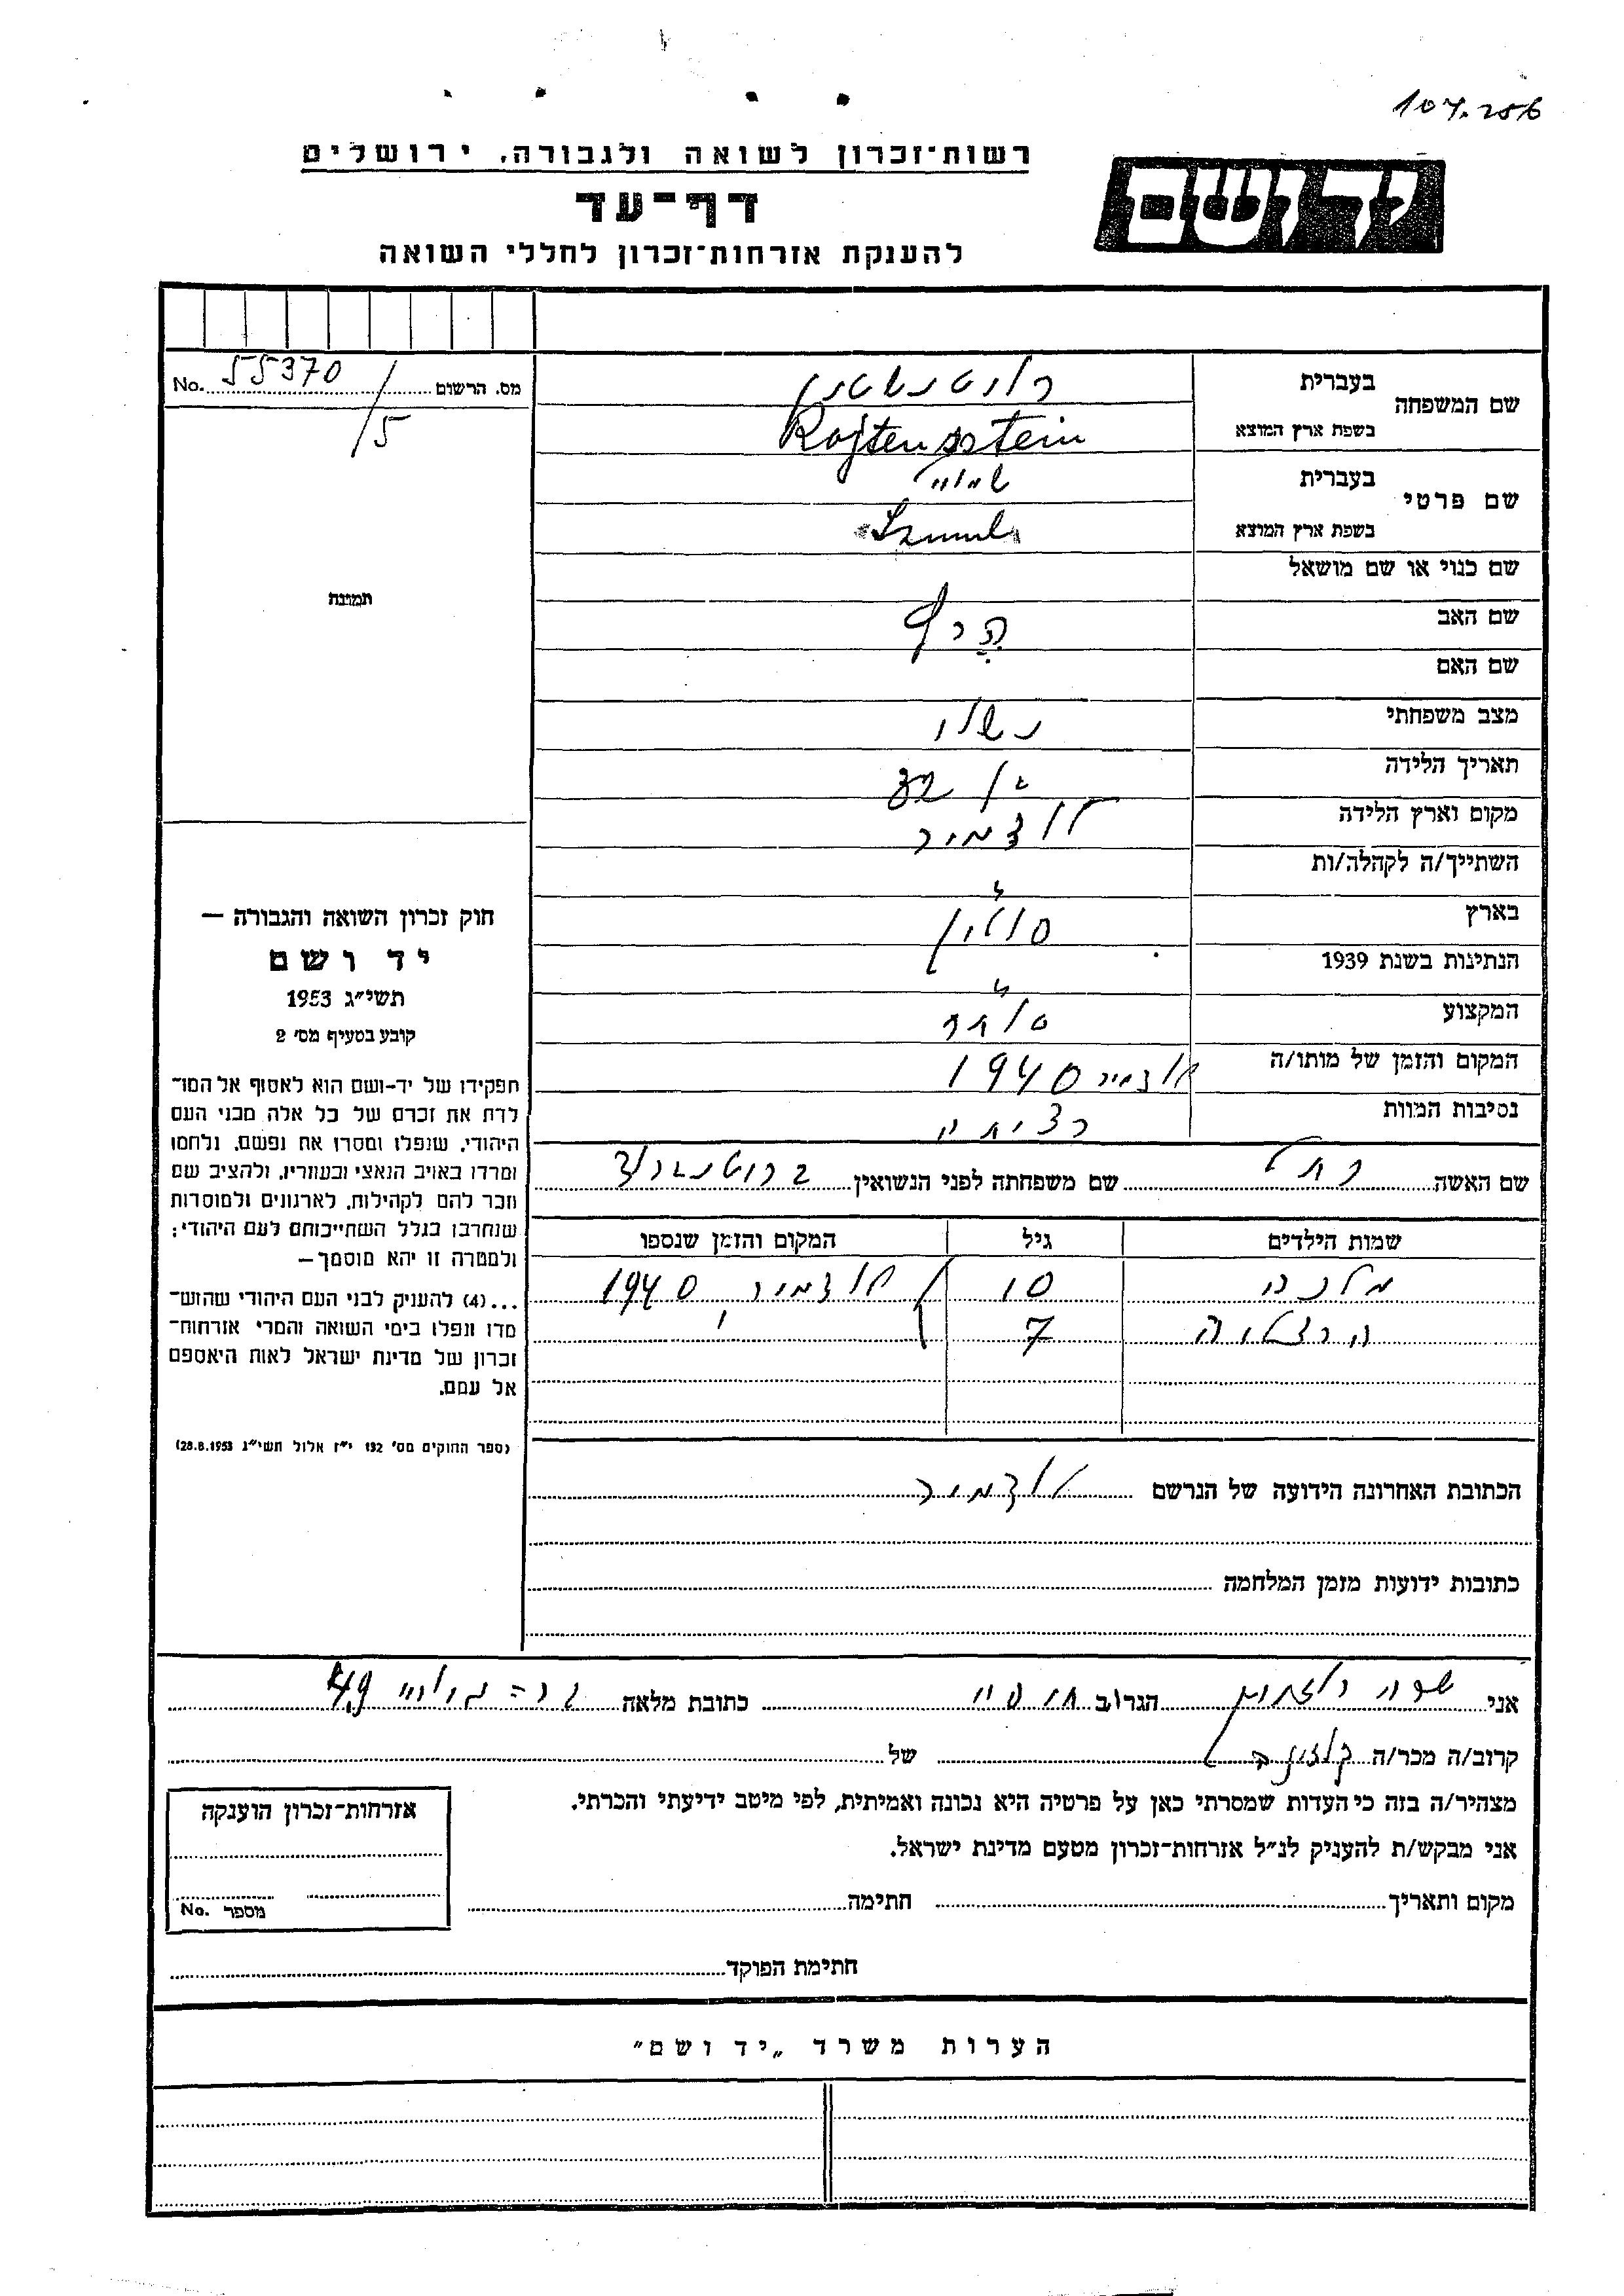 107.256
יד ושם
רשות־זכרון לשואה ולגבורה, ירושלים
דף־עד
להענקת אזרחות־זכרון לחללי השואה
מס. הרשום No. 55370/5
תמונה
שם המשפחה בעברית רויטנשטין
בשפת ארץ המוצא Rojtensstein
שם פרטי בעברית
בשפת ארץ המוצא Szmul
שם כנוי או שם מושאל
שם האב
שם האם
מצב משפחתי נשוי
תאריך הלידה
מקום וארץ הלידה לודמיר
השתייך/ה לקהלה/ות
בארץ פולין
הנתינות בשנת 1939
המקצוע סוחר
המקום והזמן של מותו/ה לודמיר 1940
נסיבות המוות רציחה
שם האשה רחל שם משפחתה לפני הנשואין
שמות הילדים גיל המקום והזמן שנספו
מלכה 10 לודמיר, 1940
הרצליה 7
הכתובת האחרונה הידועה של הנרשם לודמיר
כתובות ידועות מזמן המלחמה
חוק זכרון השואה והגבורה —
יד ושם
תשי״ג 1953
קובע בסעיף מס׳ 2
תפקידו של יד-ושם הוא לאסוף אל המו־
לדת את זכרם של כל אלה מבני העם
היהודי, שנפלו ומסרו את נפשם, נלחמו
ומרדו באויב הנאצי ובעוזריו, ולהציב שם
וזכר להם לקהילות, לארגונים ולמוסדות
שנחרבו בגלל השתייכותם לעם היהודי;
ולמטרה זו יהא מוסמך—
...(4) להעניק לבני העם היהודי שהוש־
מדו ונפלו בימי השואה והמרי אזרחות־
זכרון של מדינת ישראל לאות היאספם
אל עמם.
(ספר החוקים מס׳ 132 י״ז אלול תשי״ג 28.8.1953)
אני הגר/ב כתובת מלאה 49
קרוב/ה מכר/ה של
מצהיר/ה בזה כי העדות שמסרתי כאן על פרטיה היא נכונה ואמיתית, לפי מיטב ידיעתי והכרתי.
אני מבקש/ת להעניק לנ״ל אזרחות־זכרון מטעם מדינת ישראל.
מקום ותאריך חתימה
חתימת הפוקד
אזרחות־זכרון הוענקה
מספר No.
הערות משרד „יד ושם״